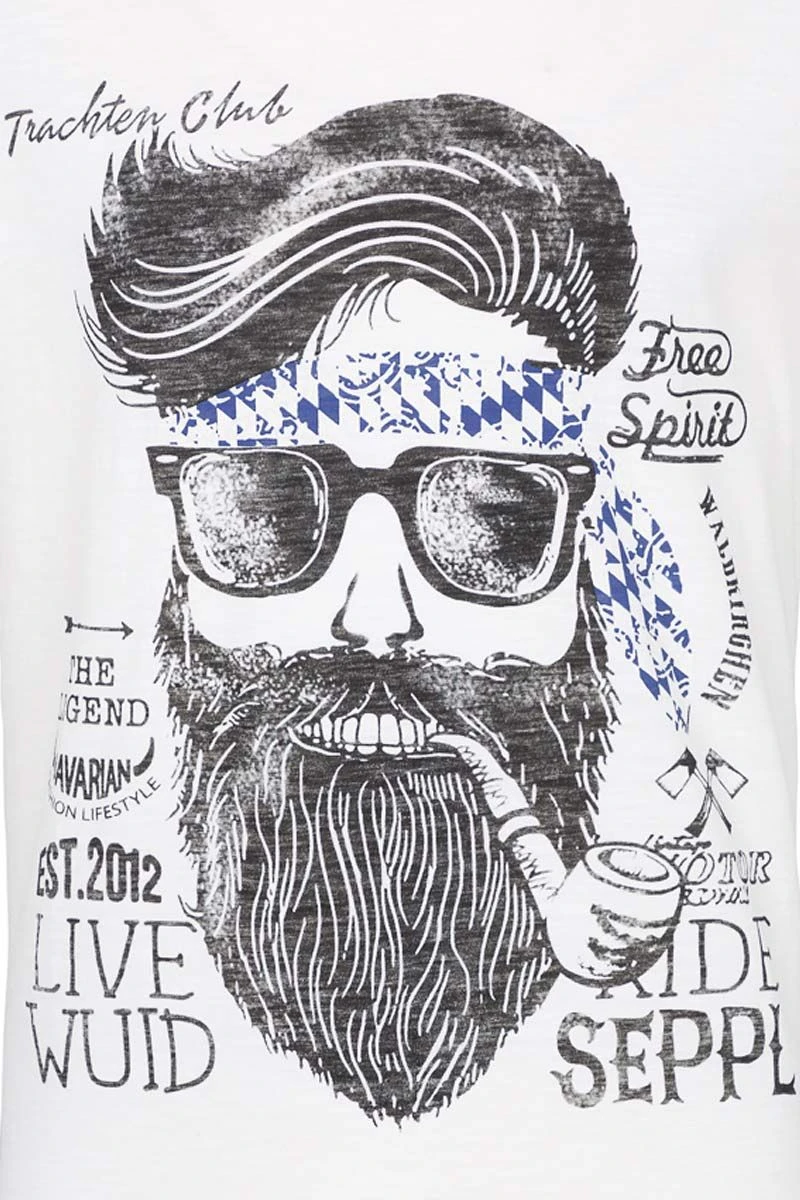 Trachten Club
Free
Spirit
WALDKIRCHEN
THE
LEGEND
BAVARIAN
LIFESTYLE
EST.2012
LIVE
WUID
MOTOR
RIDE
SEPPL